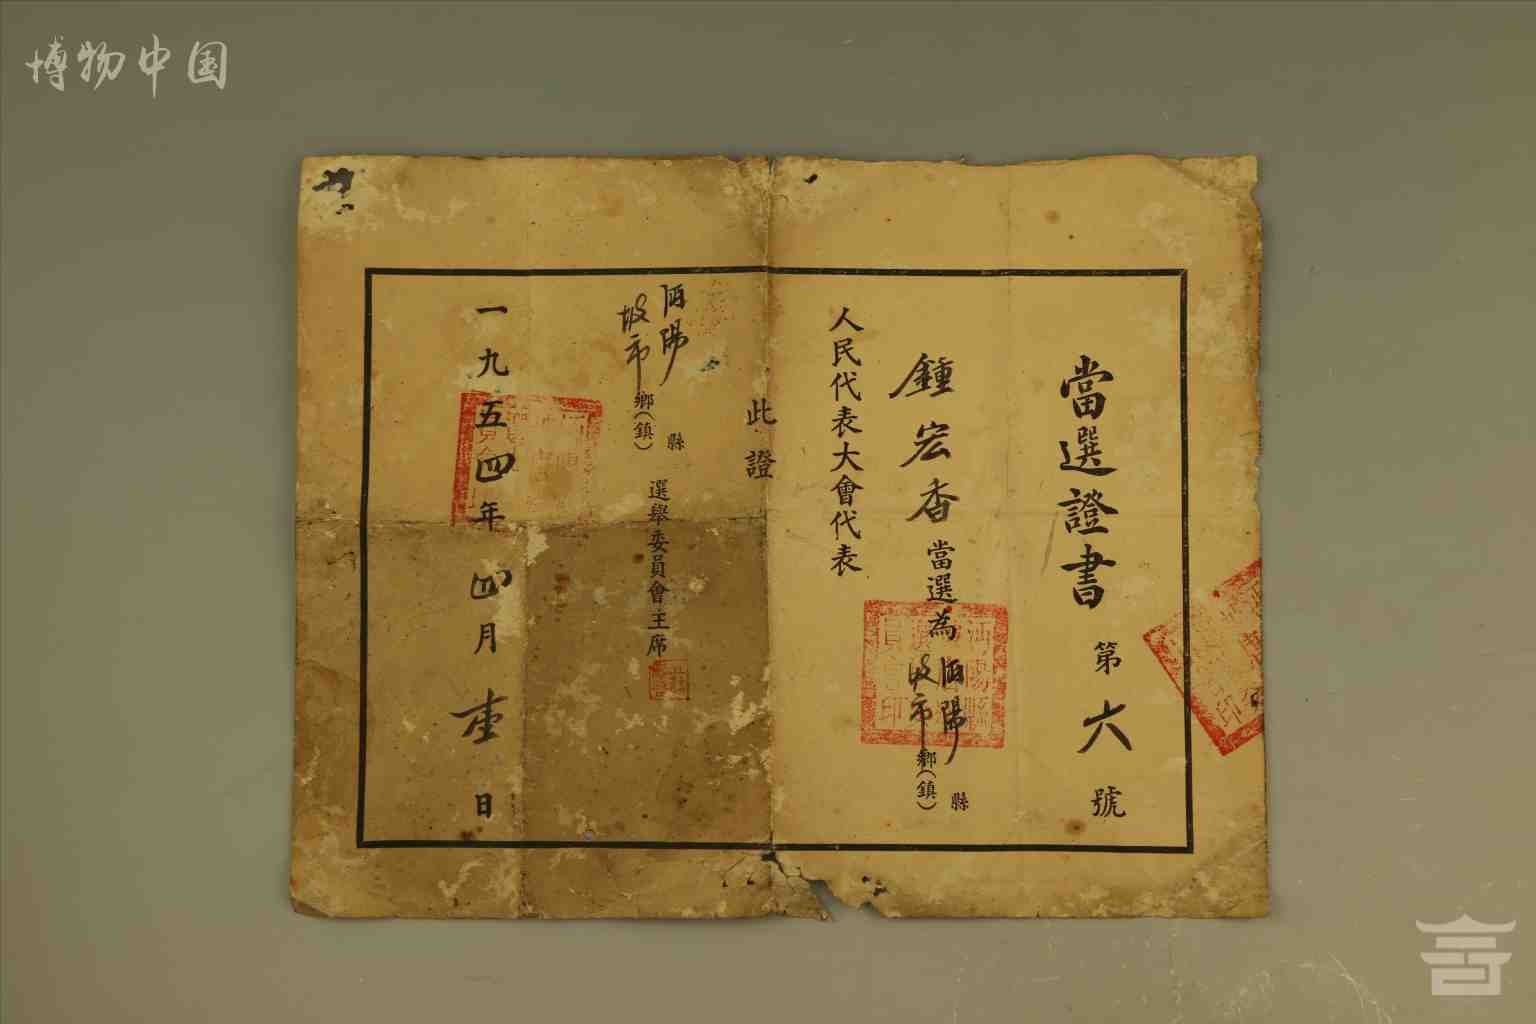 博物中国
當選證書
第六號
鍾宏香當選為沔陽縣
坡市鄉(鎮)
人民代表大會代表
此證
沔陽縣
坡市鄉(鎮)
選舉委員會主席
一九五四年四月壹日